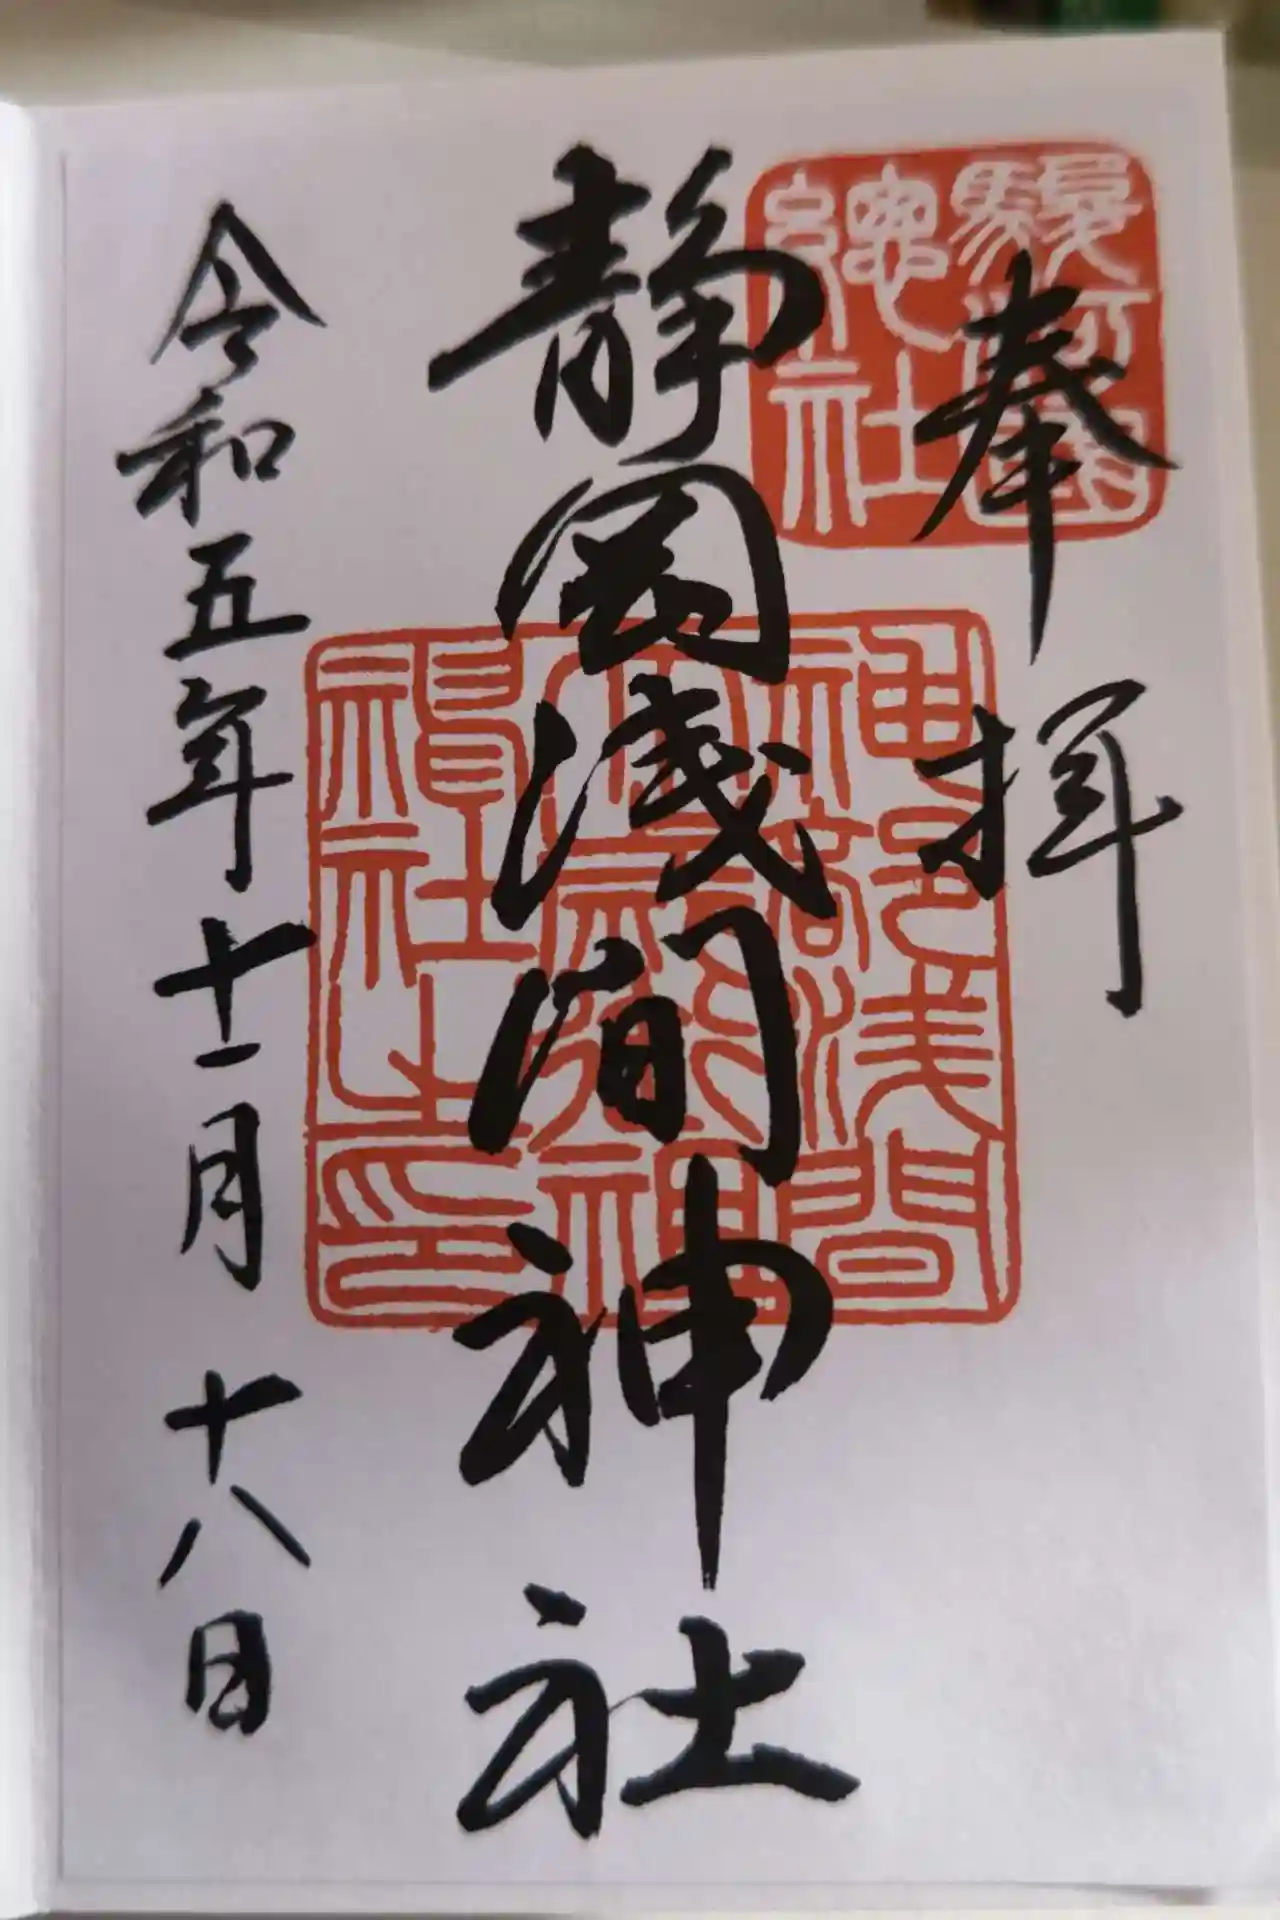 奉拝
駿河國
總社
静岡浅間神社
神部浅間
大歳御祖神社之印
令和五年十一月十八日